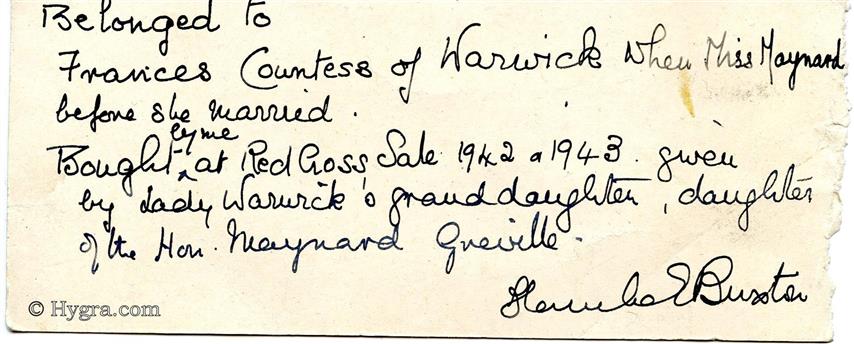 Belonged to
Frances Countess of Warwick when Miss Maynard
before she married.
by me
Bought ^ at Red Cross Sale 1942 or 1943. given
by Lady Warwick's granddaughter, daughter
of the Hon. Maynard Greville.
E Buxton
© Hygra.com